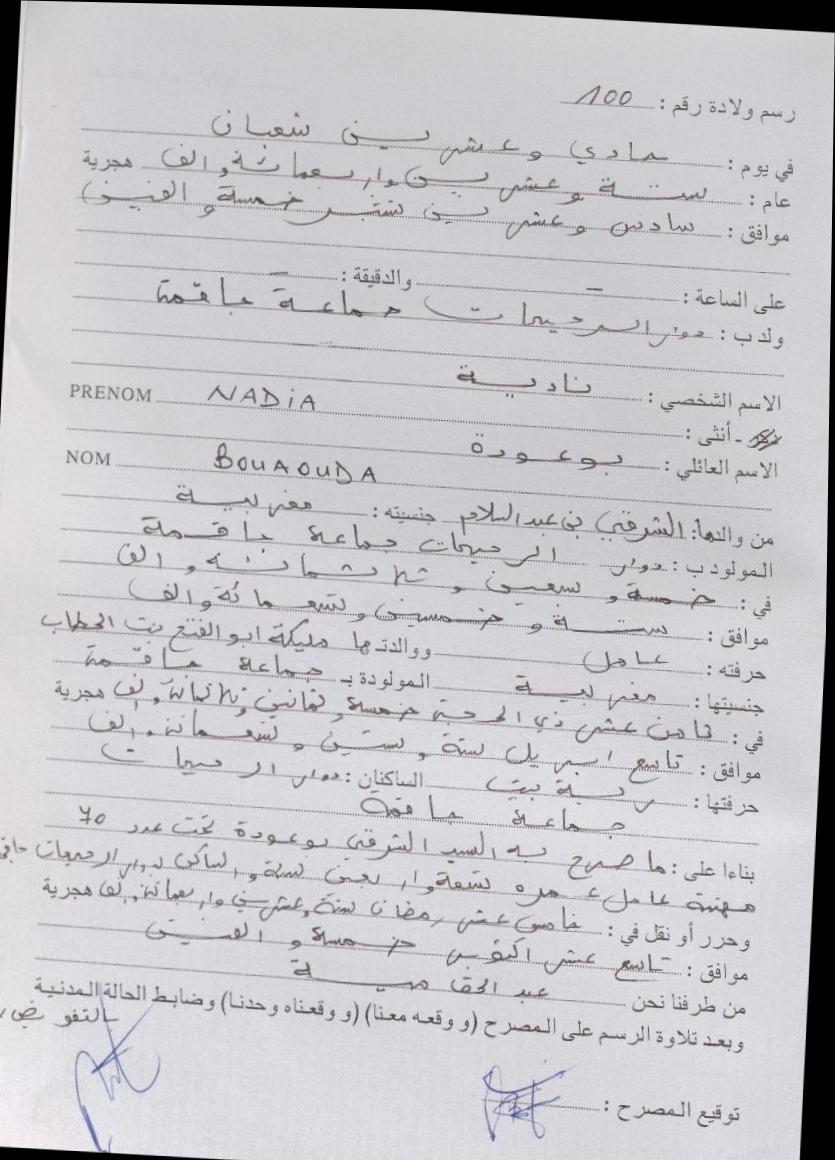 رسم ولادة رقم : 100
في يوم : حادي وعشرين شعبان
عام : ستة وعشرين واربعمائة والف هجرية
موافق : سادس وعشرين شتنبر خمسة والفين
على الساعة : – والدقيقة : –
ولد ب : دوار الرحيمات جماعة حافمة
الاسم الشخصي : نادية
PRENOM NADIA
ذكر - أنثى :
الاسم العائلي : بوعودة
NOM BOUAOUDA
من والدها : الشرقي بن عبد السلام جنسيته : مغربية
المولود ب : دوار الرحيمات جماعة
في : خمسة وسبعين وثلاثمائة والف
موافق : ستة وخمسين وتسعمائة والف
حرفته : عامل ووالدتها مليكة ابو الفتح بنت الحطاب
جنسيتها : مغربية المولودة بـ جماعة
في : ثامن عشر ذي الحجة خمسة وثمانين وثلاثمائة والف هجرية
موافق : تاسع ابريل ستة وستين وتسعمائة والف
حرفتها : ربة بيت الساكنان : دوار الرحيمات
جماعة
بناءا على : ما صرح به السيد الشرقي بوعودة تحت عدد 70
مهنته عامل عمره تسعة واربعين سنة والساكن بدوار الرحيمات
وحرر أو نقل في : خامس عشر رمضان ستة وعشرين واربعمائة والف هجرية
موافق : تاسع عشر اكتوبر خمسة والفين
من طرفنا نحن عبد الحق
وبعد تلاوة الرسم على المصرح (و وقعه معنا) (و وقعناه وحدنا) وضابط الحالة المدنية
بالتفويض
توقيع المصرح :